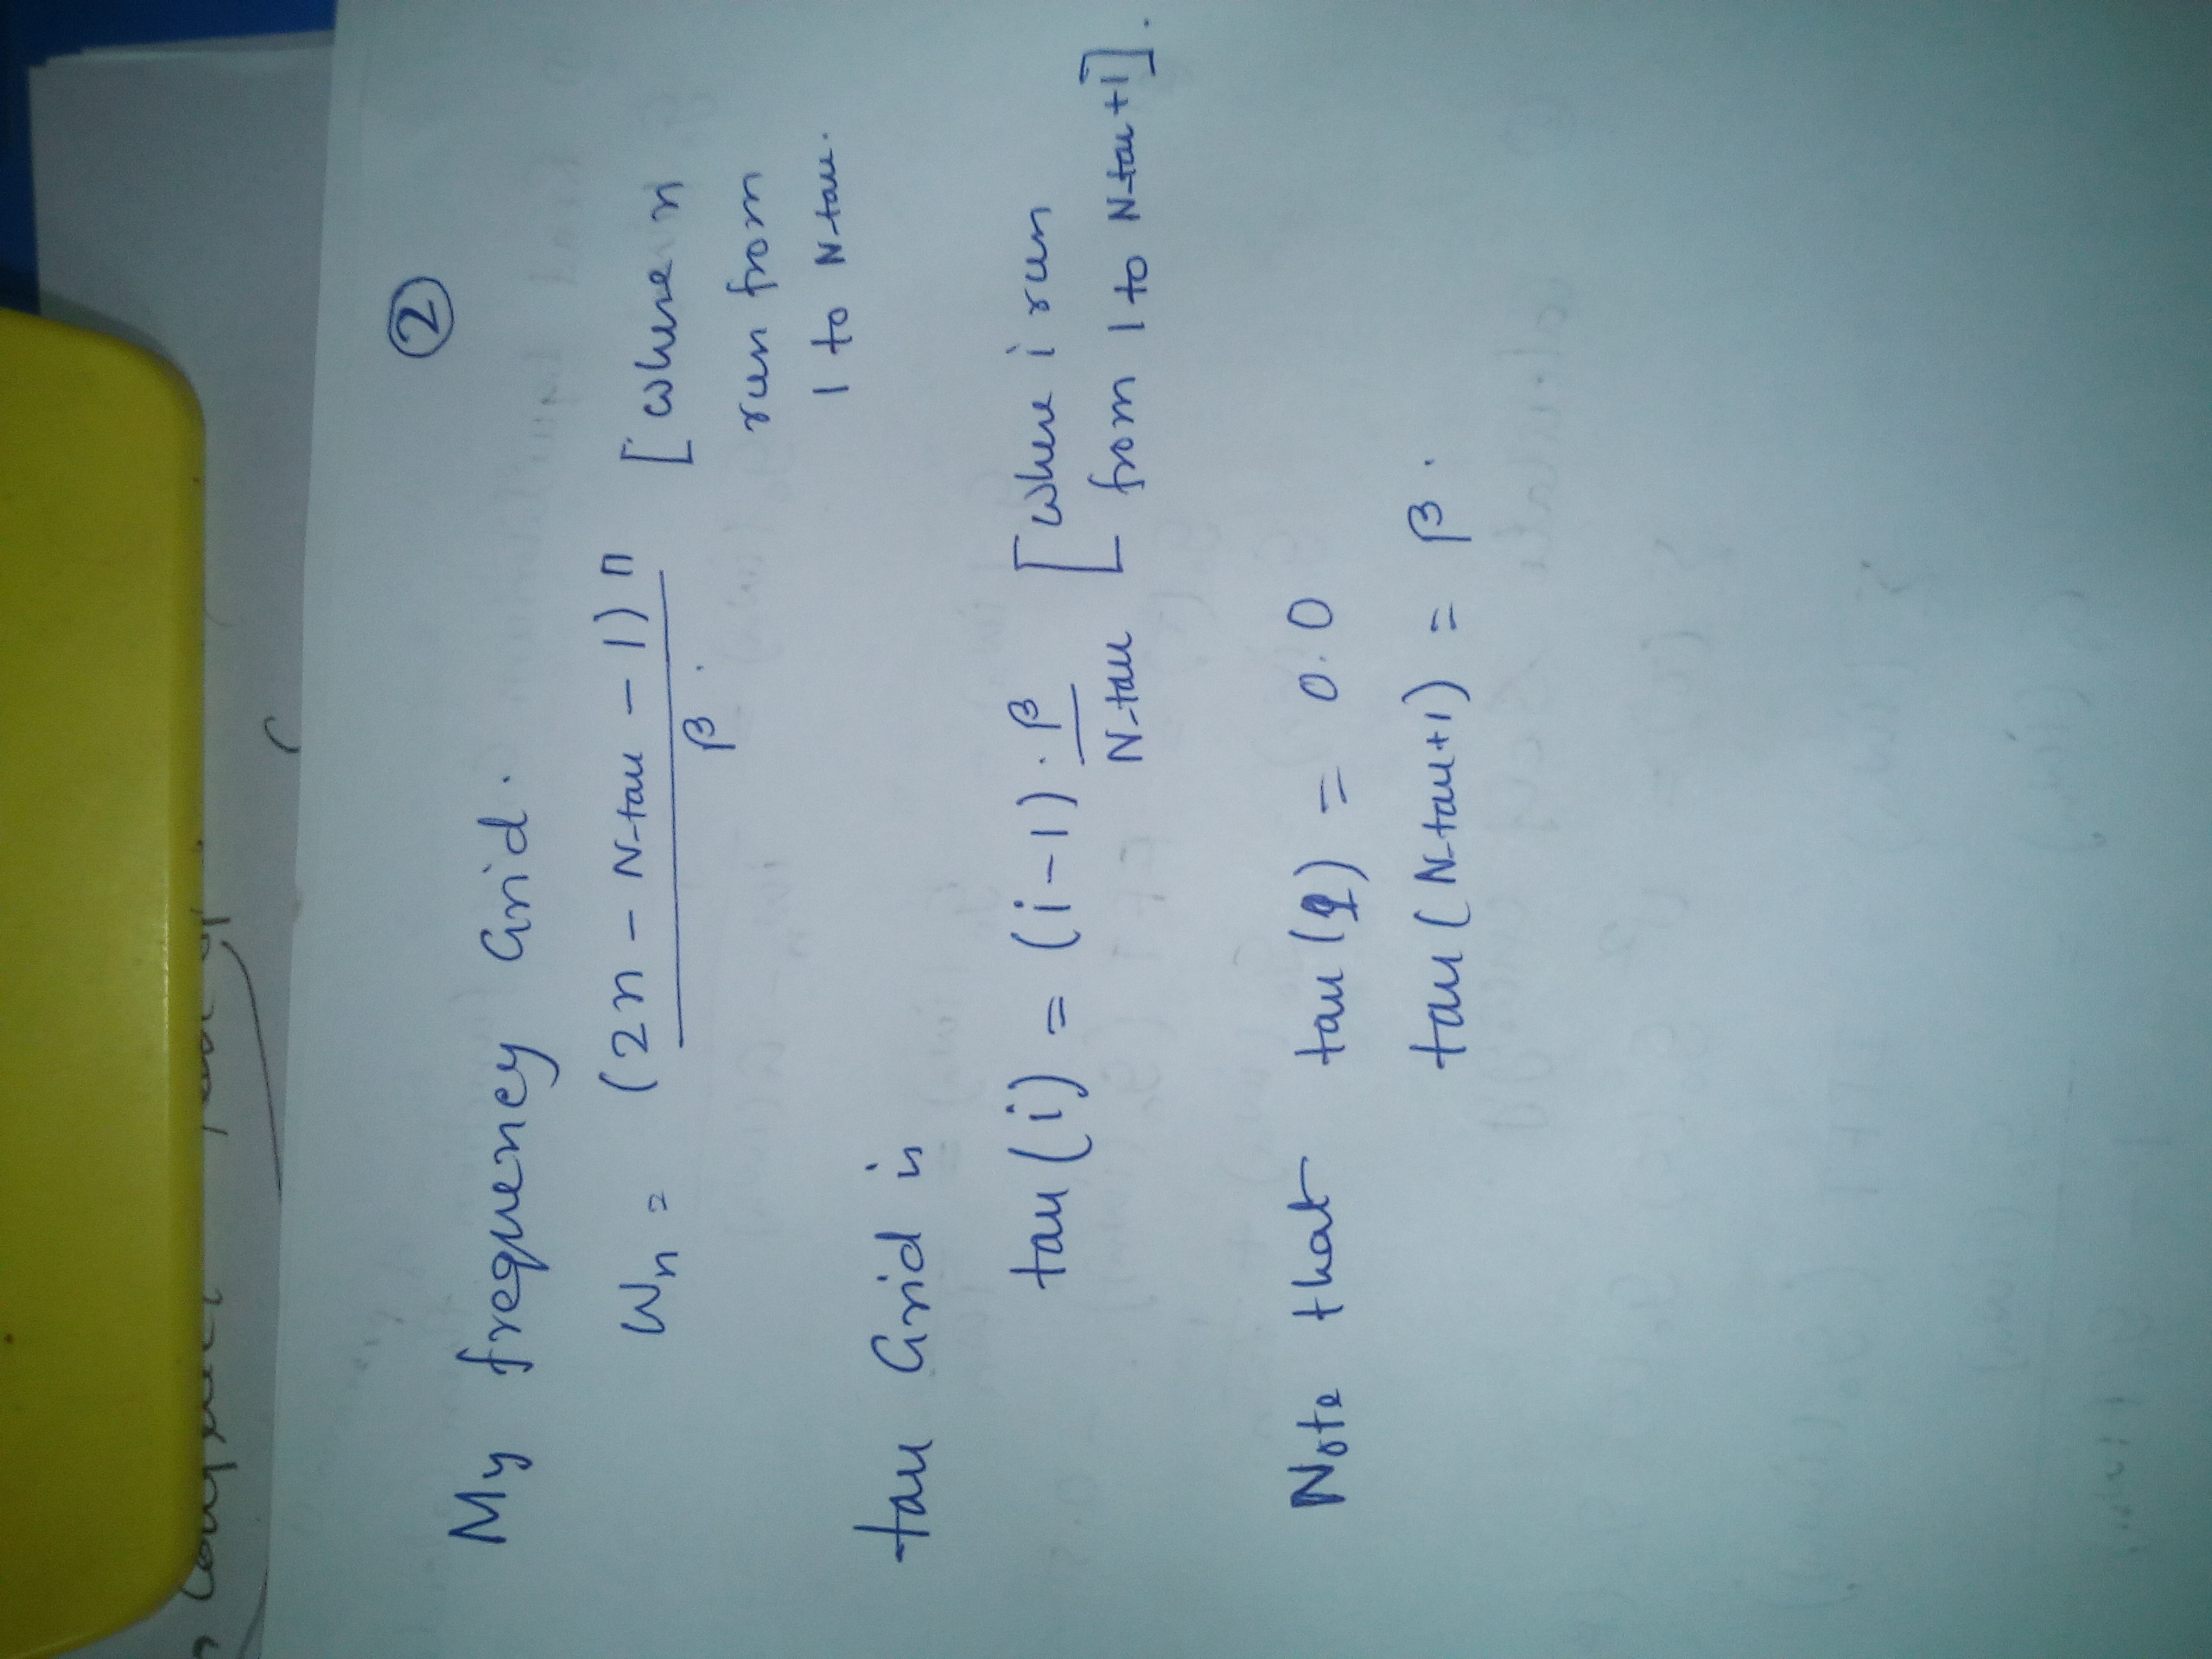 ②
My frequency Grid.
Wn = (2n - N-tau - 1) π / β. [where n
run from
1 to N-tau.
tau Grid is
tau (i) = (i-1) . β / N-tau [where i run
from 1 to N-tau+1].
Note that tau (1) = 0.0
tau (N-tau+1) = β.